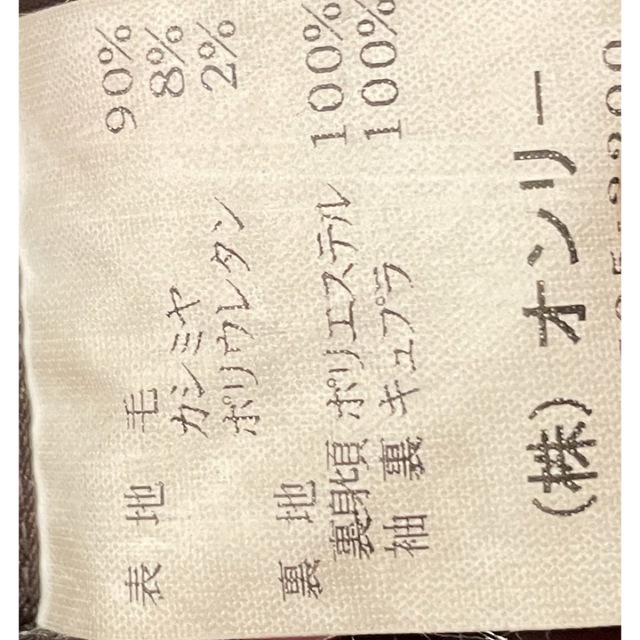 表 地 毛 90%
カシミヤ 8%
ポリウレタン 2%
裏 地
裏身頃 ポリエステル 100%
袖 裏 キュプラ 100%
(株) オンリー